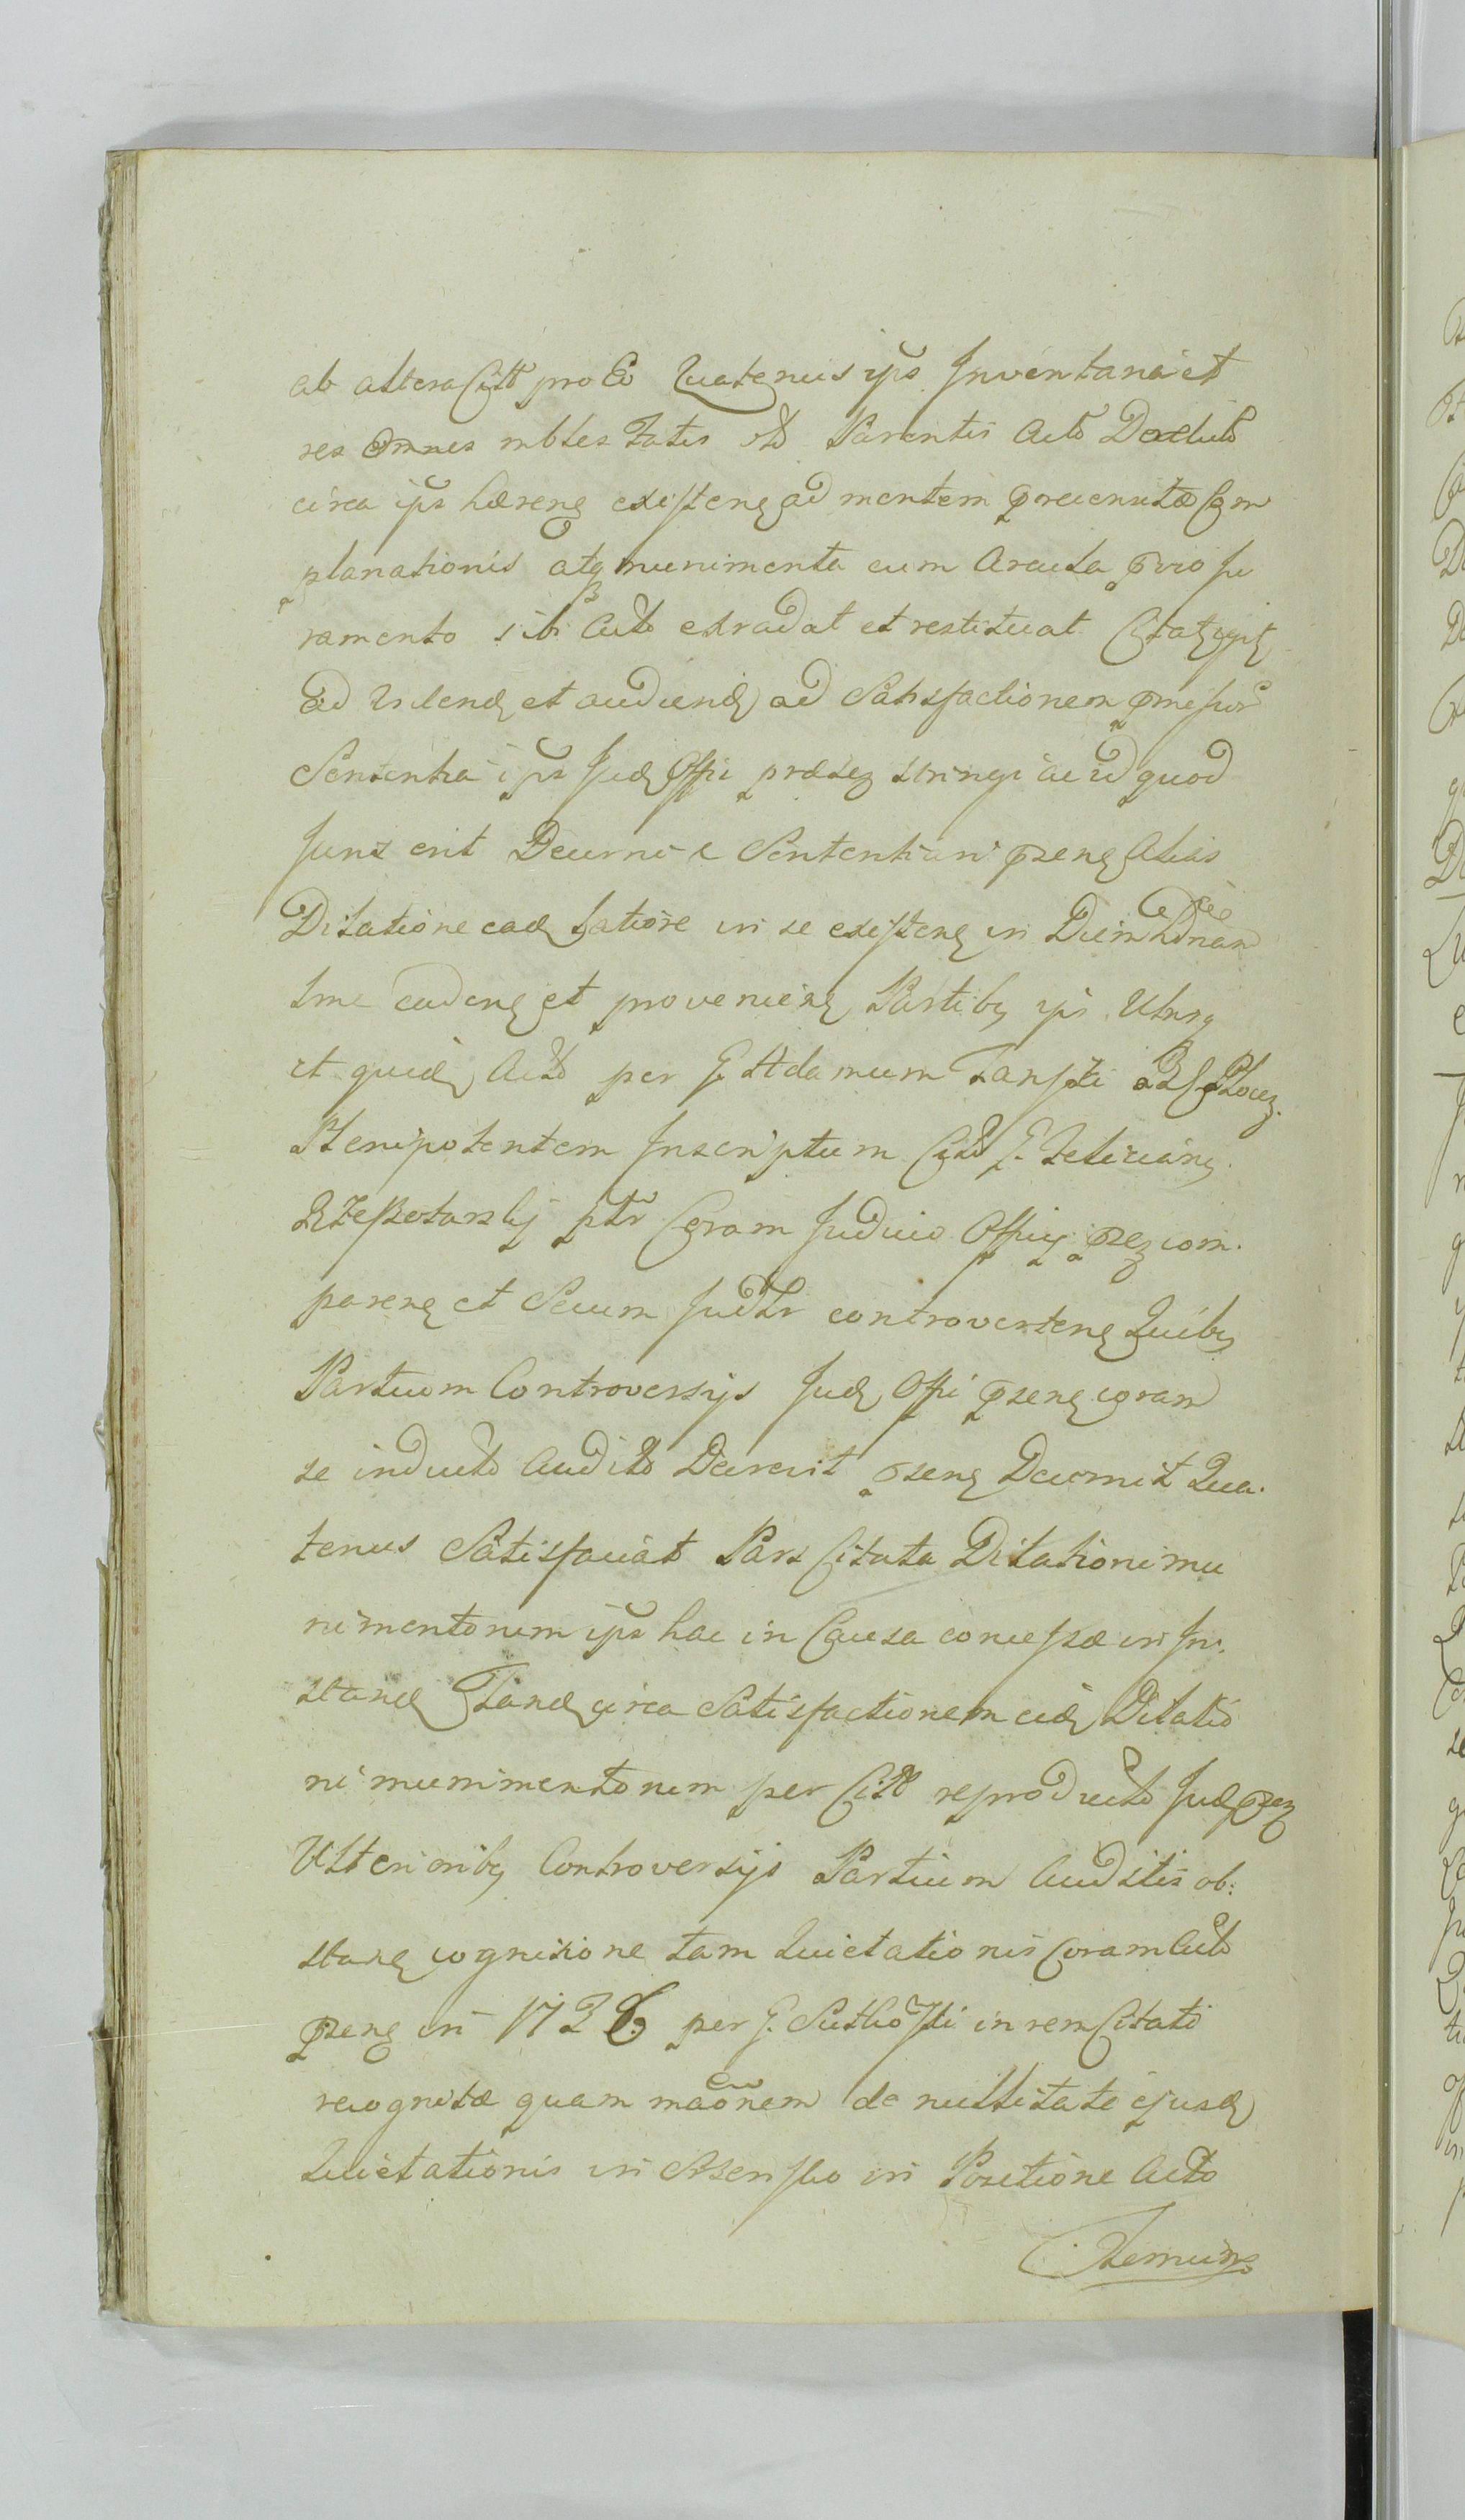 ab altera Citt pro Eo Quatenus ips Inventaria et
res omnes mbles Fatis Parentis Acto Derelicto
circa ips hæreng existeng ad mentem præcensitæ Com
planationis atq munimenta cum Arcula prvio Ju
ramento sibi Acto extradat et restituat
Ad Videnđ et audienđ ad Satisfactionem pmissor
Sententia ips Juđ Offi præsez stringi ac id quod
Juris erit Decerni e Sententiari pseng Alias
Dilatione eađ Latiore in se existeng in Diem
tme cadeng et provenieng Partibq ips Utrisq
et quiđ Acto per G. Adamum
Plenipotentem Inscriptum Citt G. Felicianu
Rzeszotarskij ptr Coram Judicio Offij psez com.
pareng et Secum Judtr controverteng Quibq
Partium Controversijs Juđ Offi pseng coram
se inducto Audito Decrevit pseng Decernit Qua.
tenus Satisfaciat Pars Citata Dilationi mu
nimentorum ips hac in Causa concessæ in In.
stanđ circa Satisfactionem eiđ Dilatio
ni munimentorum per Citt reproducto Juđ psez
Ulterioribq Controversijs Partium Auditis ob:
stang cognitione tam Quietationis Coram Acto
pseng in 173 per G. Sutkoski in rem Citati
recognitæ quam maonem de nullitate ejusđ
Quietationis in Assensu in Positione Acto